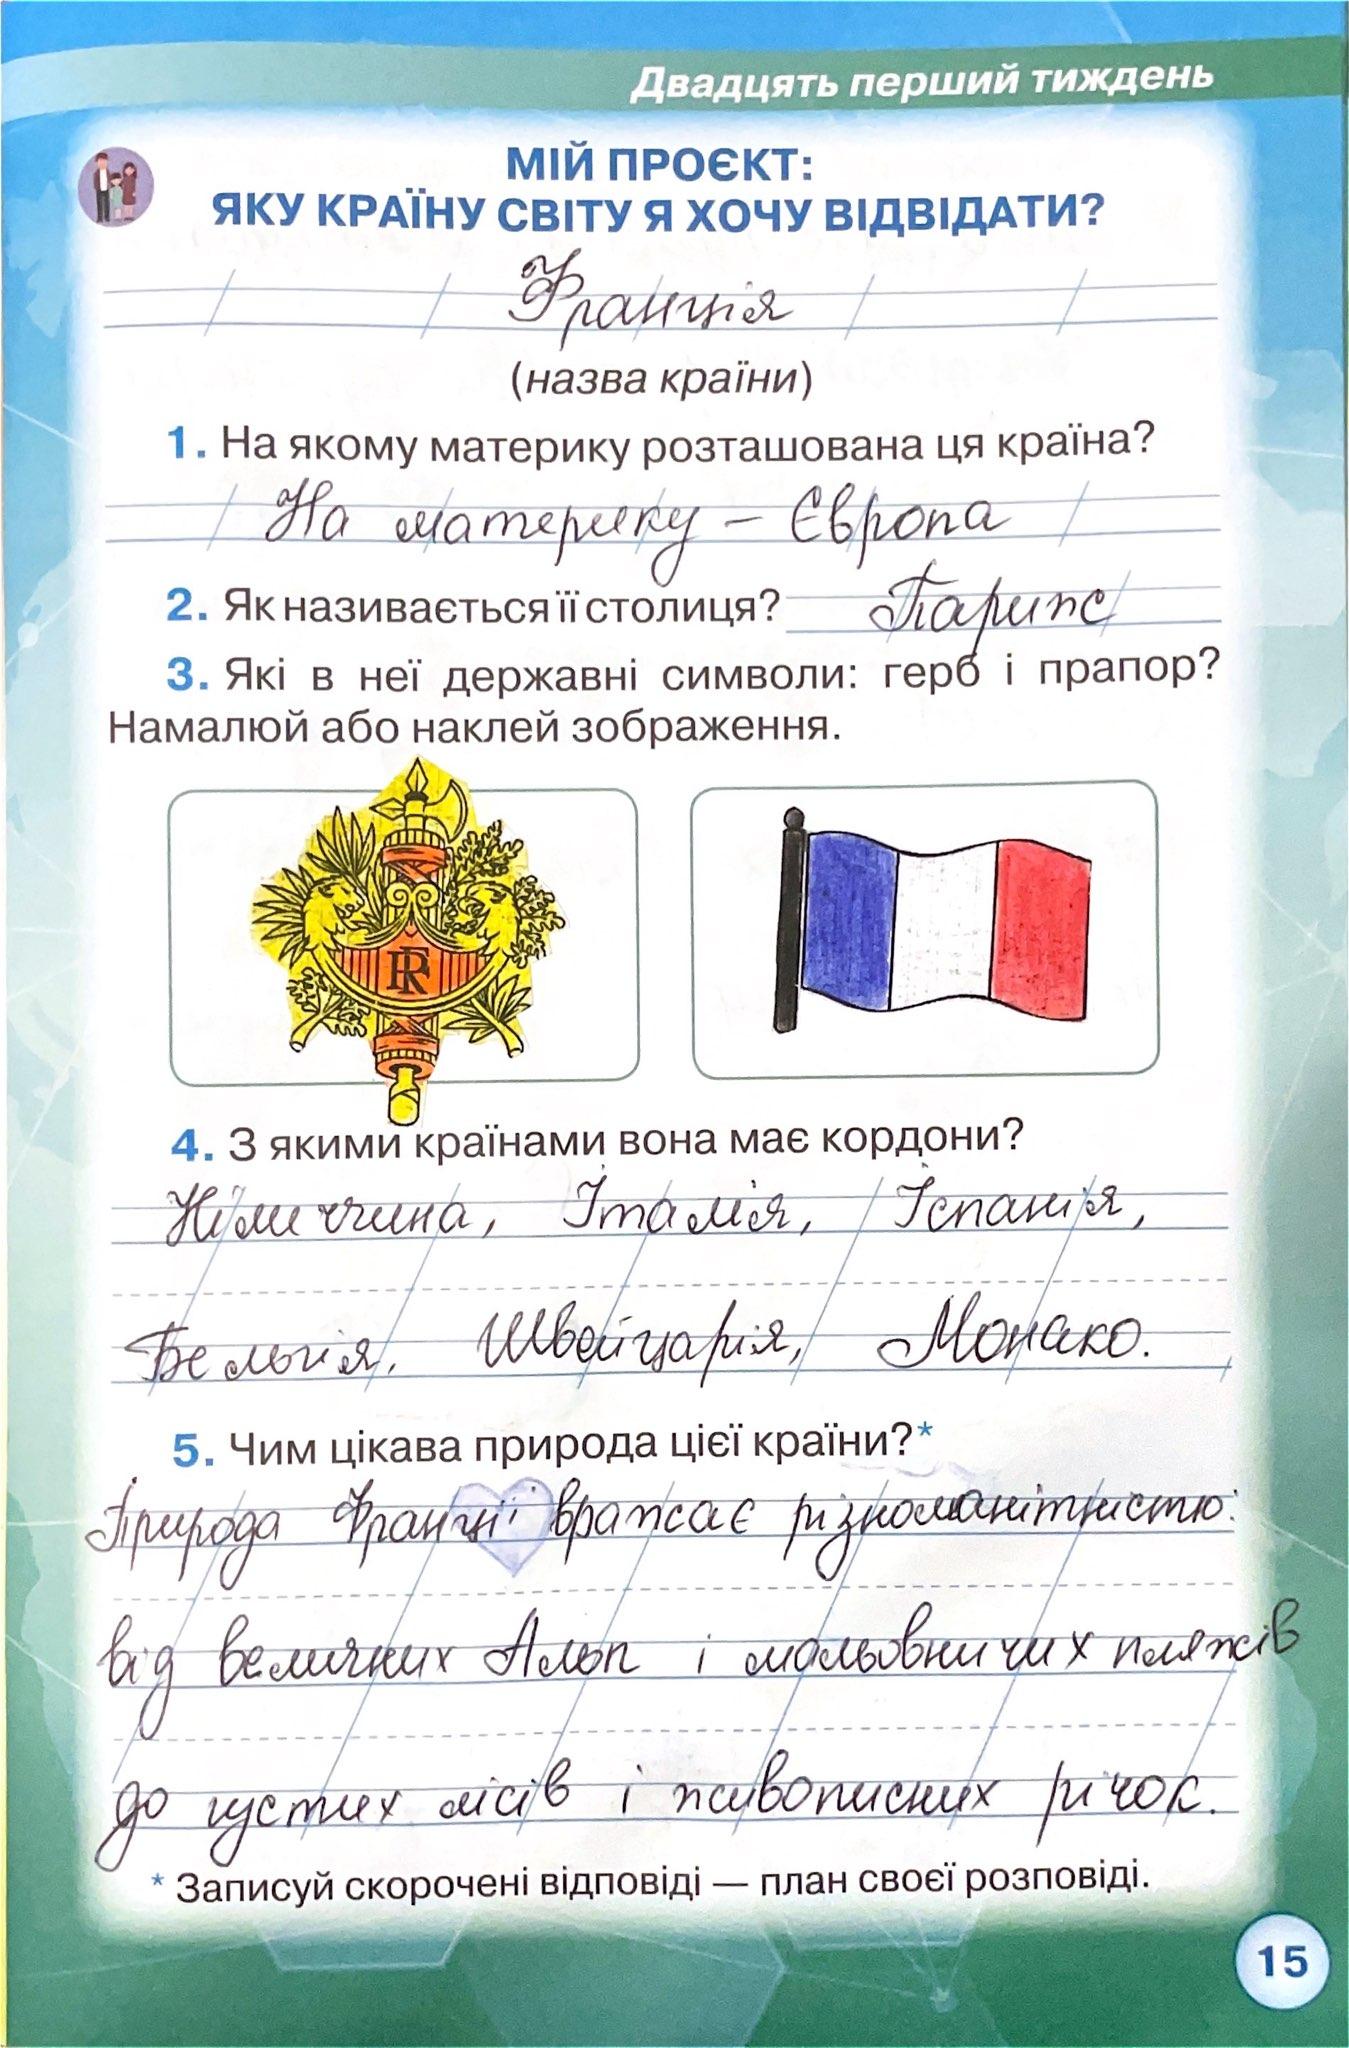 Двадцять перший тиждень
МІЙ ПРОЄКТ:
ЯКУ КРАЇНУ СВІТУ Я ХОЧУ ВІДВІДАТИ?
Франція
(назва країни)
1. На якому материку розташована ця країна?
На материку – Європа
2. Як називається її столиця? Париж
3. Які в неї державні символи: герб і прапор?
Намалюй або наклей зображення.
RF
4. З якими країнами вона має кордони?
Німиччина, Італія, Іспанія,
Бельгія, Швейцарія, Монако.
5. Чим цікава природа цієї країни?*
Природа Франції вражає різноманітністю:
від величних Альп і мальовничих пляжів
до густих лісів і живописних річок.
* Записуй скорочені відповіді — план своєї розповіді.
15